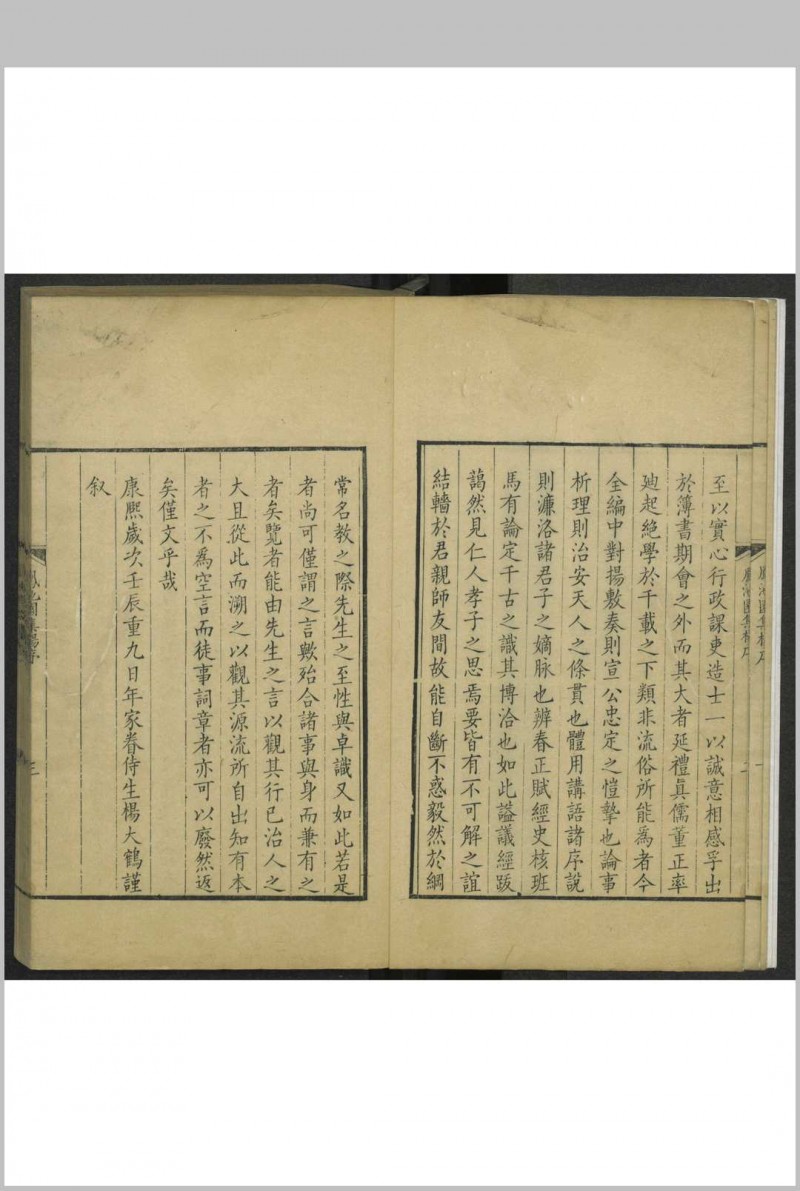 至以實心行政課吏造士一以誠意相感孚出
於簿書期會之外而其大者延禮眞儒董正率
廸起絶學於千載之下類非流俗所能爲者今
全編中對揚敷奏則宣公忠定之愷摯也論事
析理則治安天人之條貫也體用講語諸序說
則濂洛諸君子之嫡脉也辨春正賦經史核班
馬有論定千古之識其博洽也如此謚議經跋
藹然見仁人孝子之思焉要皆有不可解之誼
結轖於君親師友間故能自斷不惑毅然於綱
常名教之際先生之至性與卓識又如此若是
者尚可僅謂之言歟殆合諸事與身而兼有之
者矣覽者能由先生之言以觀其行已治人之
大且從此而溯之以觀其源流所自出知有本
者之不爲空言而徒事詞章者亦可以廢然返
矣僅文乎哉
康熙歲次壬辰重九日年家眷侍生楊大鶴謹
叙
三